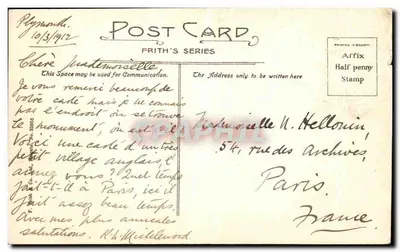 Plymouth.
10/3/1912
POST CARD
FRITH'S SERIES
PRINTED IN SAXONY
Affix
Half penny
Stamp
Chère Mademoiselle
This Space may be used for Communication.
The Address only to be written here
Je vous remercie beaucoup de
votre carte mais je ne connais
pas l'endroit où se trouve
le monument, où est-il?
Voici une carte d'un très
petit village anglais, l'
aimez vous? Quel temps
fait-t-il à Paris, ici il
fait assez beau temps.
Avec mes plus amicales
salutations.
Mademoiselle M. Hellouin,
54, rue des Archives,
Paris.
France.